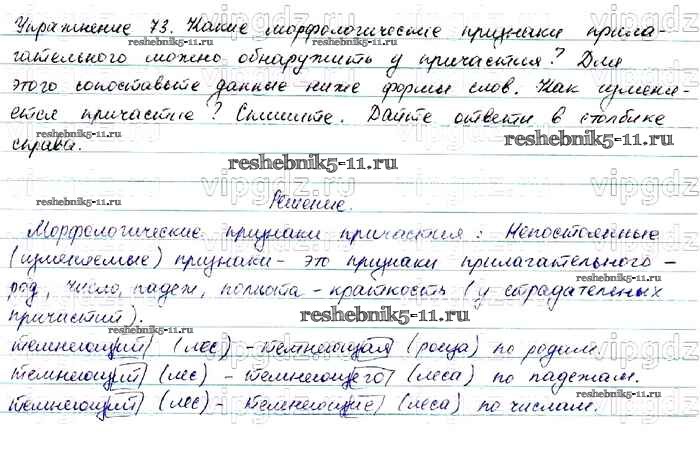 Упражнение 73. Какие морфологические признаки прила-
reshebnik5-11.ru reshebnik5-11.ru
гательного можно обнаружить у причастия? Для
этого сопоставьте данные ниже формы слов. Как изменя-
ется причастие? Спишите. Дайте ответы в столбике
reshebnik5-11.ru
справа.
reshebnik5-11.ru
vipgdz.ru
reshebnik5-11.ru
Решение.
Морфологические признаки причастия: Непостоянные
(изменяемые) признаки - это признаки прилагательного -
reshebnik5-11.ru
род, число, падеж, полнота - краткость (у страдательных
причастий).
reshebnik5-11.ru
темнеющий (лес) - темнеющая (роща) по родам.
темнеющий (лес) - темнеющего (леса) по падежам.
reshebnik5-11.ru
темнеющий (лес) - темнеющие (леса) по числам.